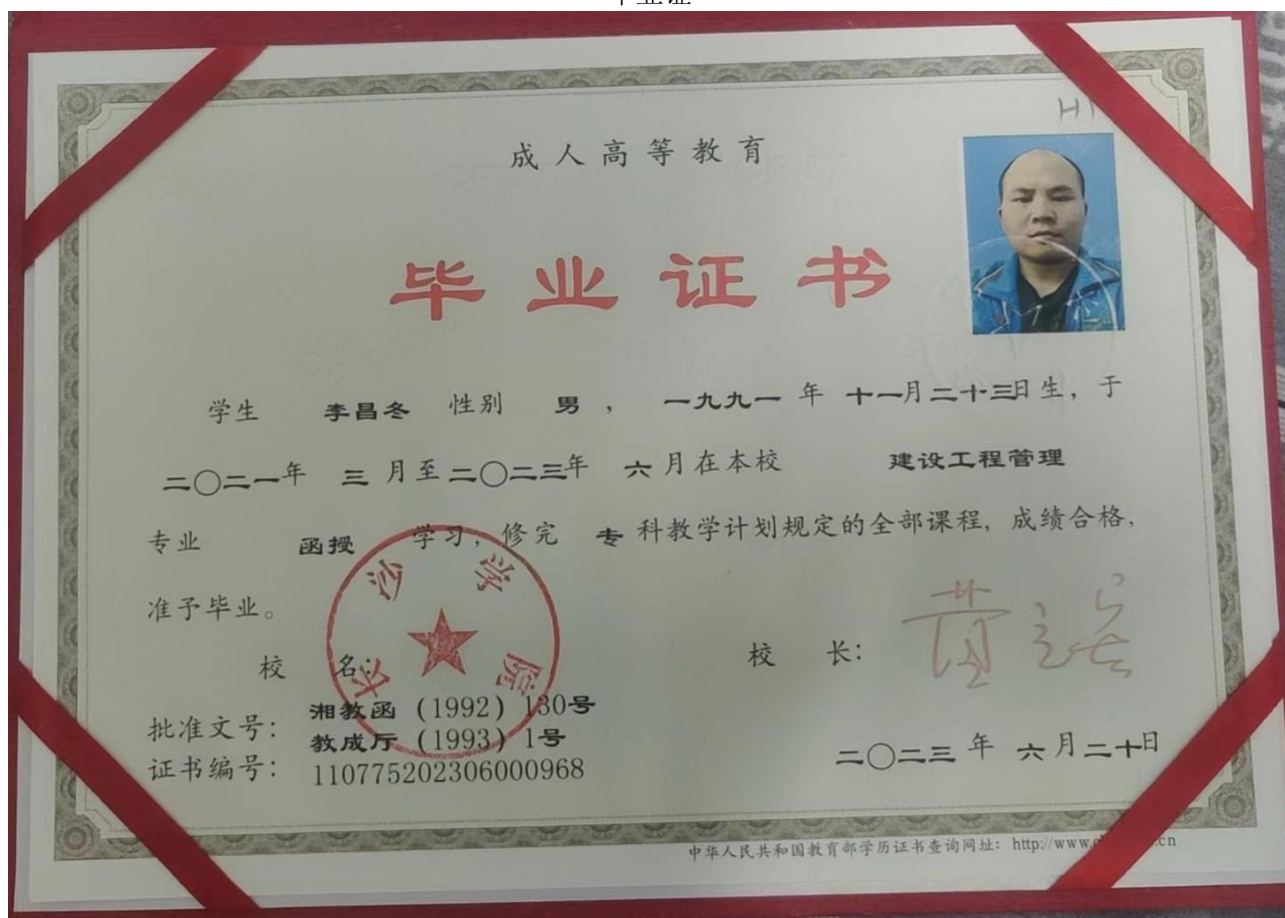 毕业证
H1
成人高等教育
毕业证书
学生 李昌冬 性别 男 , 一九九一 年 十一月二十三日生, 于
二〇二一年 三 月至二〇二三年 六 月在本校 建设工程管理
专业 函授 学习, 修完 专 科教学计划规定的全部课程, 成绩合格,
准予毕业。
长沙学院
校 名: 校 长:
批准文号: 湘教函 (1992) 130号
教成厅 (1993) 1号
证书编号: 110775202306000968
二〇二三 年 六 月二十日
中华人民共和国教育部学历证书查询网址: http://www.